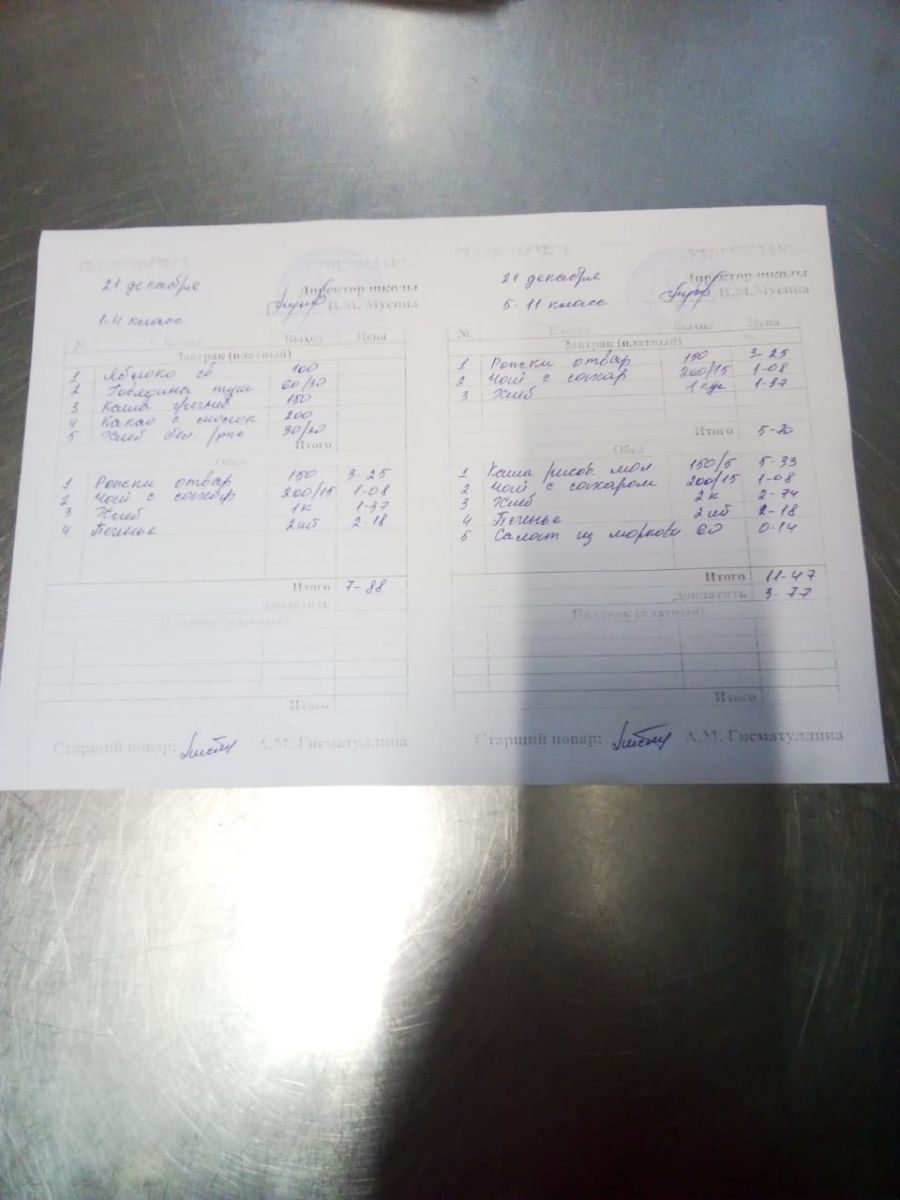 УТВЕРЖДАЮ:
21 декабря
Директор школы
И.М. Мусина
1-4 класс
№ Блюда Выход Цена
Завтрак (платный)
1 Яблоко св 100
2 Говядина туш 60/30
3 Каша гречнев 150
4 Какао с молок 200
5 Хлеб бел /рж 30/20
Итого
Обед
1 Рожки отвар 150 3-25
2 Чай с сахар 200/15 1-08
3 Хлеб 1к 1-37
4 Печенье 2шт 2-18
Итого 7-88
Доплатить
Полдник (платный)
Итого
Старший повар: А.М. Гисматуллина
УТВЕРЖДАЮ:
21 декабря
Директор школы
И.М.Мусина
5-11 класс
№ Блюда Выход Цена
Завтрак (платный)
1 Рожки отвар 150 3-25
2 Чай с сахар 200/15 1-08
3 Хлеб 1 кус 1-37
Итого 5-70
Обед
1 Каша рисов. мол 150/5 5-33
2 Чай с сахаром 200/15 1-08
3 Хлеб 2к 2-74
4 Печенье 2 шт 2-18
5 Салат из моркови 60 0-14
Итого 11-47
Доплатить 3-77
Полдник (платный)
Итого
Старший повар: А.М. Гисматуллина